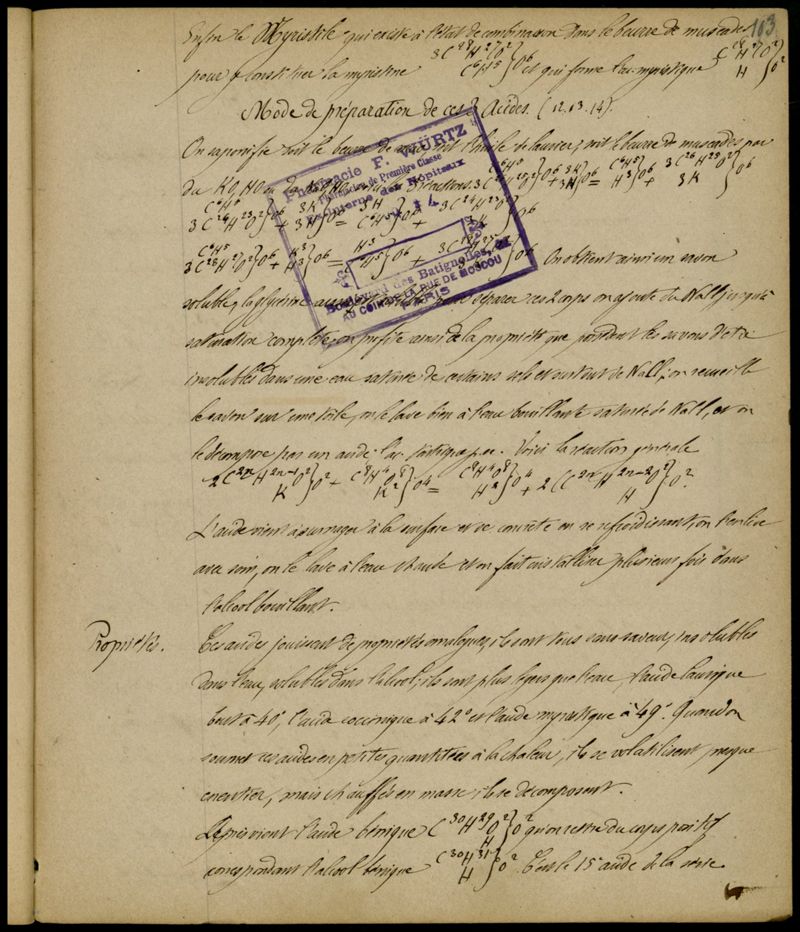 103
Enfin le Myristile qui existe à l'état de combinaison dans le beurre de muscades
pour y constituer la myristine 3C28H27O2 C6H5}O6 et qui forme l'ac. myristique C28H27O2 H}O2
Mode de préparation de ces 3 Acides. (12.13.14).
On saponifie soit le beurre de soit l'huile de laurier, soit le beurre de muscades par
du KO,HO ou la réactions
3C26H25O2}O6 + 3K 3H}O6 = C6H5 H3}O6 + 3C26H25O2 3K}O6
C6H5 3C28H27O2}O6 + K3 H3}O6 = H3}O6 + O6 On obtient ainsi un savon
soluble, la glycérine séparer ces 2 corps on ajoute du NaCl jusqu'à
saturation complète, on profite ainsi de la propriété que possèdent les savons d'être
insolubles dans une eau saturée de certains sels et surtout de NaCl; on recueille
le savon sur une toile, on le lave bien à l'eau bouillante saturée de NaCl, et on
le décompose par un acide: l'ac. tartrique p. ex. Voici la réaction générale
2 C2nH2n-1O2 K}O2 + C8H4O8 K2}O4 = C8H4O8 H2}O4 + 2(C2nH2n-2O2 H}O2
L'acide vient à surnager à la surface et se concrète en se refroidissant, on l'enlève
avec soin, on le lave à l'eau chaude et on fait cristalliser plusieurs fois dans
l'alcool bouillant.
Propriétés.
Ces acides jouissent de propriétés analogues, ils sont tous sans saveur, insolubles
dans l'eau, solubles dans l'alcool; ils sont plus légers que l'eau, l'acide laurique
fond à 40°, l'acide coccinique à 42° et l'acide myristique à 49°. Quand on
soumet ces acides en petites quantités à la chaleur, ils se volatilisent presque
en entier, mais chauffés en masse ils se décomposent.
Après vient l'acide bénique C30H29O2 H}O2 qu'on retire du corps positif
correspondant l'alcool bénique C30H31 H}O2. C'est le 15e acide de la série
Pharmacie F. WÜRTZ
Pharmacien de Première Classe
Ex-interne des Hôpitaux
Boulevard des Batignolles,
AU COIN DE LA RUE DE MOSCOU
PARIS